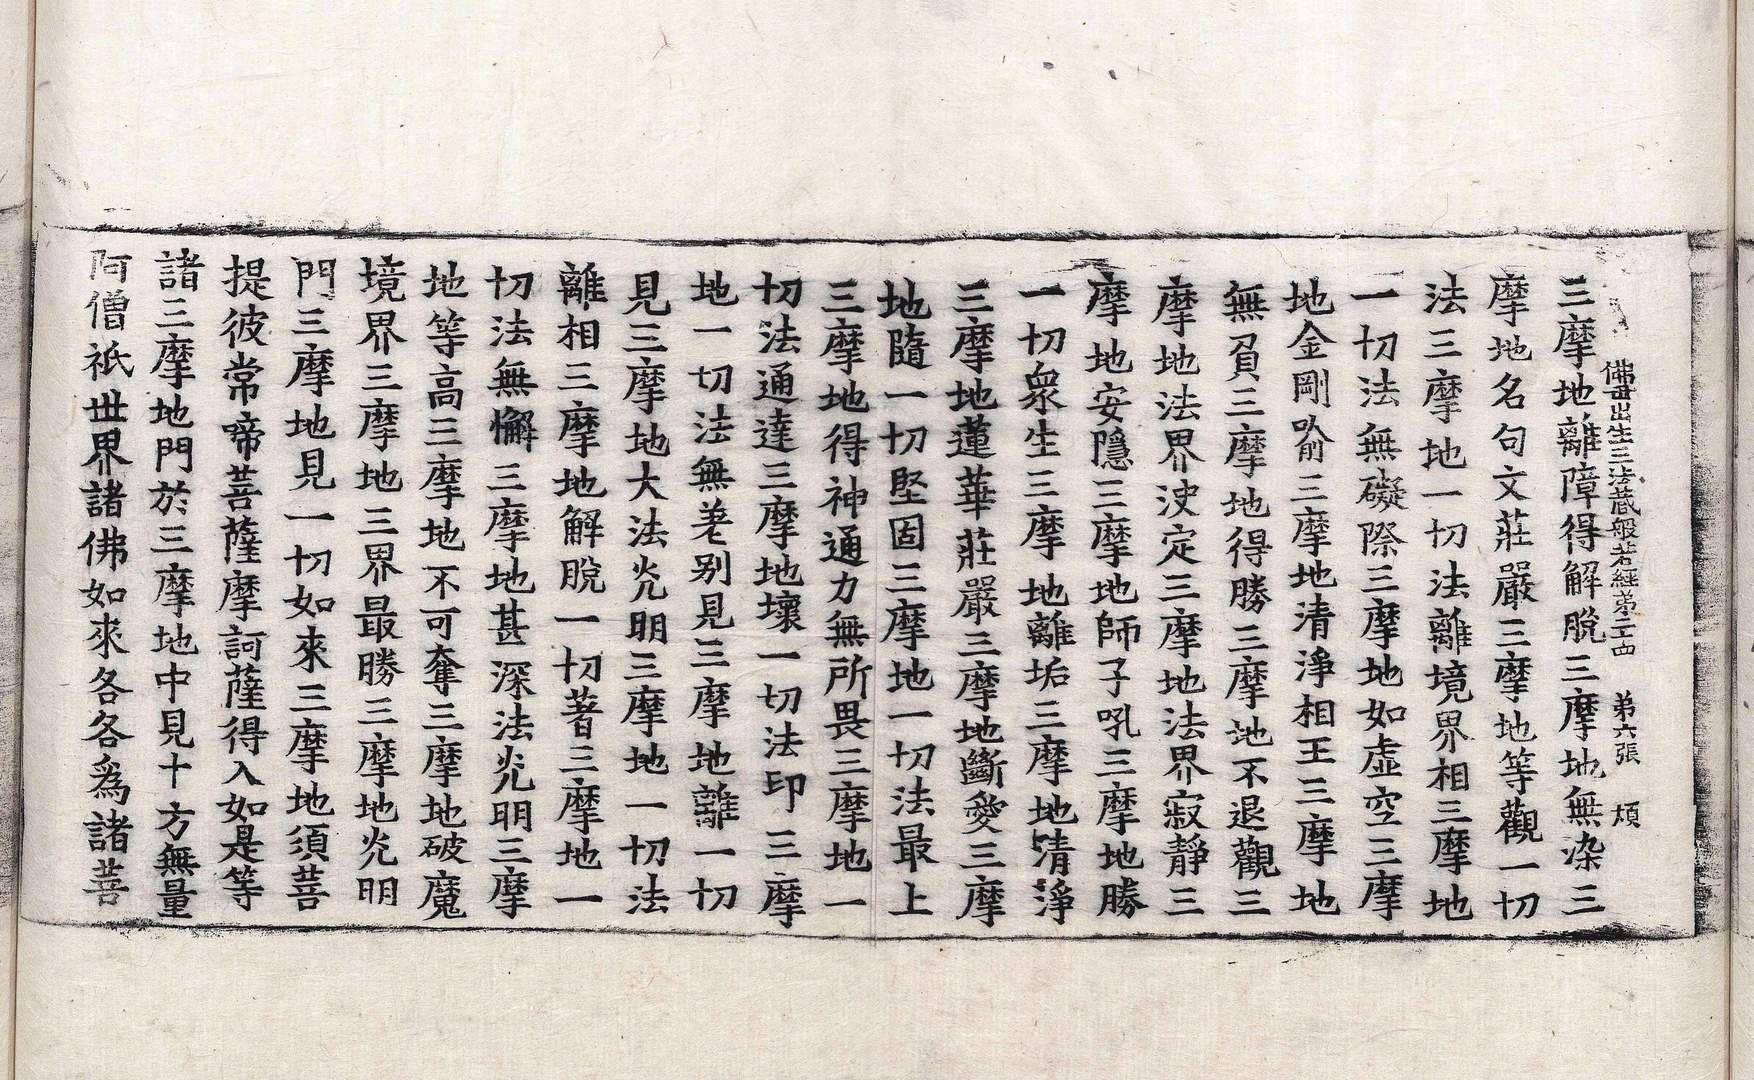 佛母出生三法藏般若經第二十四 第六張 煩
三摩地離障得解脫三摩地無染三
摩地名句文莊嚴三摩地等觀一切
法三摩地一切法離境界相三摩地
一切法無礙際三摩地如虛空三摩
地金剛喻三摩地清淨相王三摩地
無負三摩地得勝三摩地不退觀三
摩地法界決定三摩地法界寂靜三
摩地安隱三摩地師子吼三摩地勝
一切衆生三摩地離垢三摩地清淨
三摩地蓮華莊嚴三摩地斷愛三摩
地隨一切堅固三摩地一切法最上
三摩地得神通力無所畏三摩地一
切法通達三摩地壞一切法印三摩
地一切法無差別見三摩地離一切
見三摩地大法光明三摩地一切法
離相三摩地解脫一切著三摩地一
切法無懈三摩地甚深法光明三摩
地等高三摩地不可奪三摩地破魔
境界三摩地三界最勝三摩地光明
門三摩地見一切如來三摩地須菩
提彼常啼菩薩摩訶薩得入如是等
諸三摩地門於三摩地中見十方無量
阿僧祇世界諸佛如來各各爲諸菩